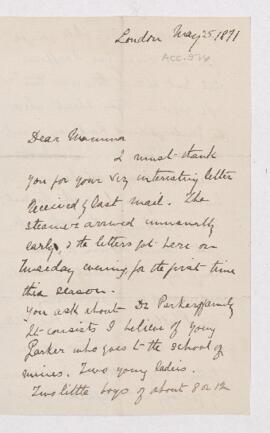 London May 25 1871
ACC.
Dear Mamma
I must thank
you for your vy interesting letter
received by last mail. The
steamer arrived unusually
early, & the letters got here on
Tuesday evening for the first time
this season.
You ask about Dr Parkers family
It consists I believe of young
Parker who goes to the school of
mines. Two young ladies.
Two little boys of about 8 or 12